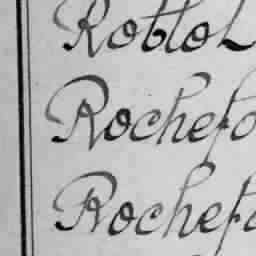 Robtol
Rochefo
Rochefo